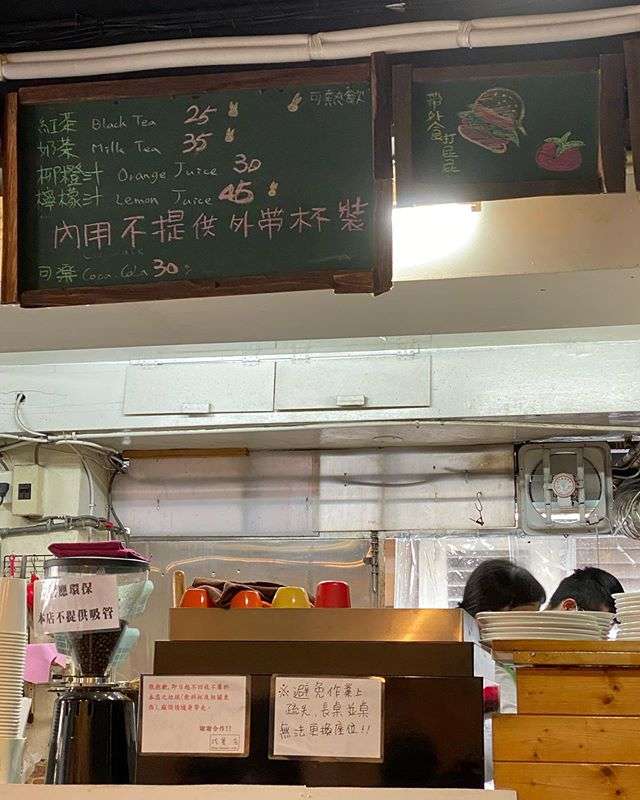 可熱飲
紅茶 Black Tea 25
奶茶 Milk Tea 35
柳橙汁 Orange Juice 30
檸檬汁 Lemon Juice 45
內用不提供外帶杯裝
可樂 Coca Cola 30
帶外食打屁屁
應環保
本店不提供吸管
很抱歉,即日起不回收不屬於
本店之垃圾
謝謝合作!!
※避免作業上
疏失、長桌並桌
無法更換座位!!